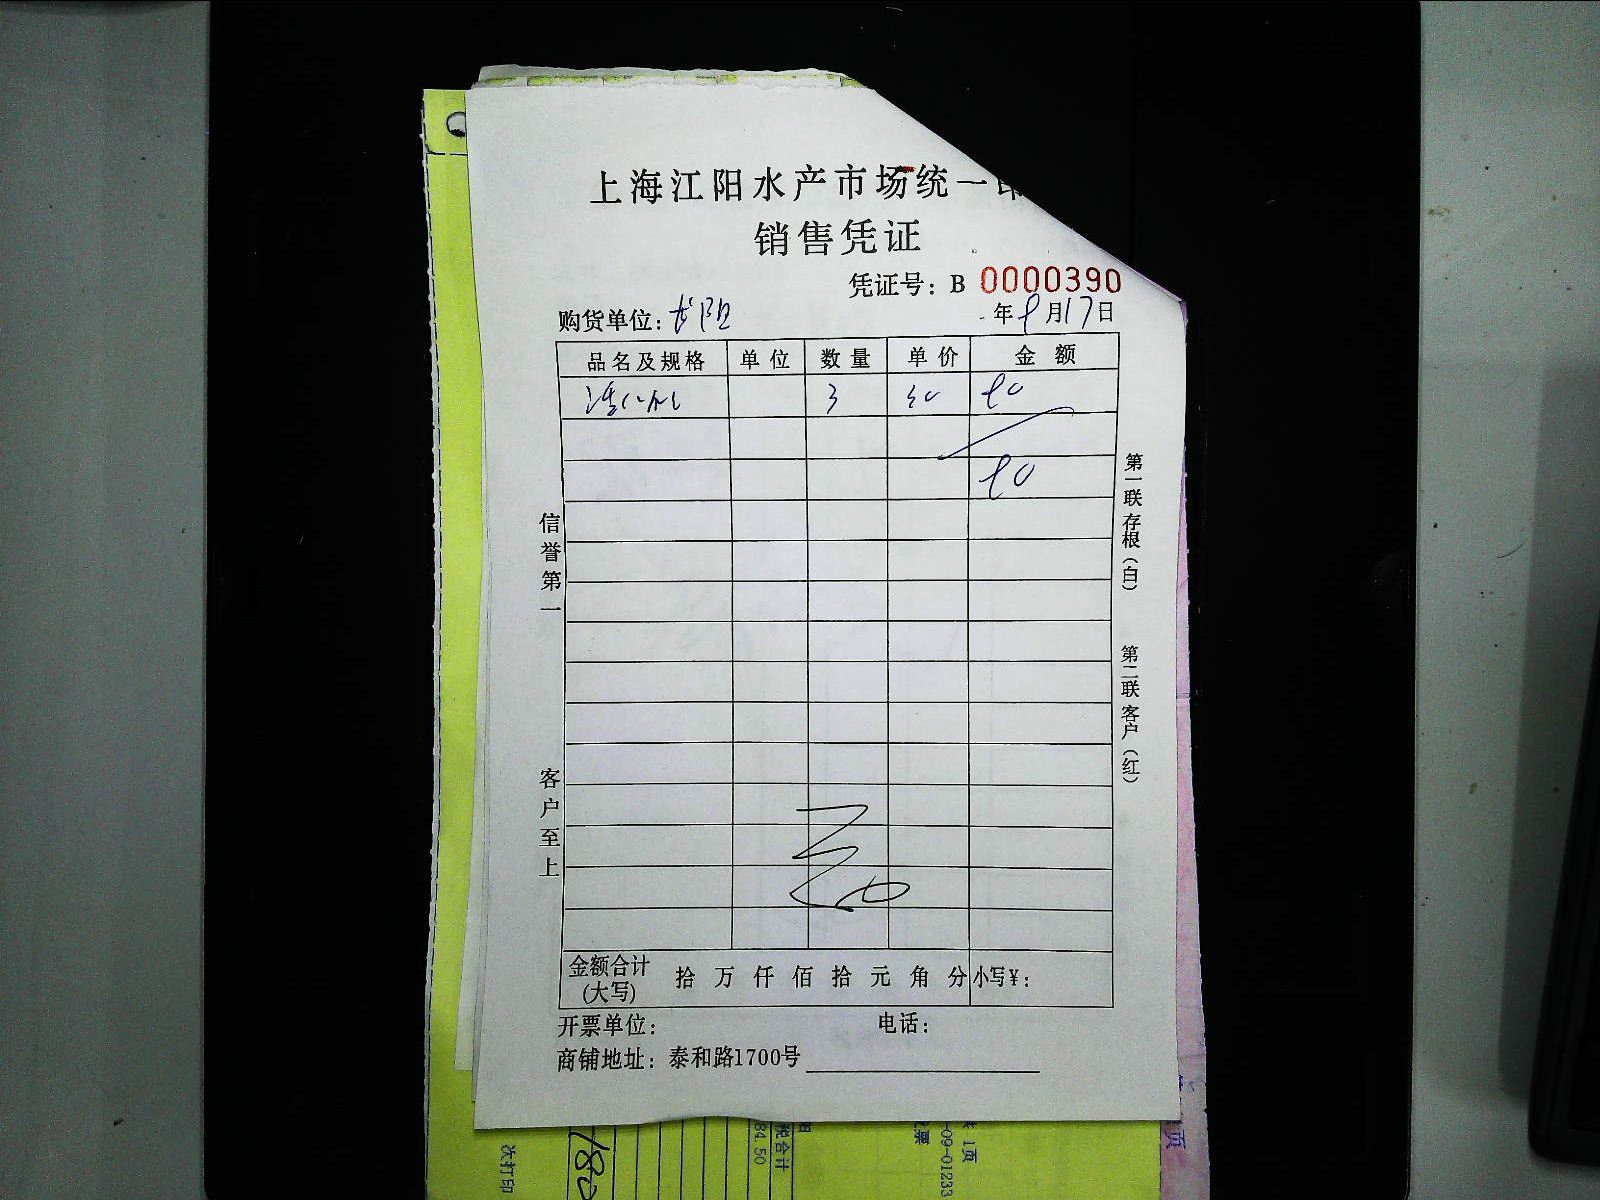 上海江阳水产市场统一
销售凭证
凭证号：B 0000390
购货单位：长阳 年9月17日
品名及规格 单位 数量 单价 金额
3 30 90
90
信誉第一
客户至上
第一联存根（白）
第二联客户（红）
金额合计(大写) 拾 万 仟 佰 拾 元 角 分 小写¥：
开票单位： 电话：
商铺地址：泰和路1700号
次打印
税合计
84.50
1页
-09-01233